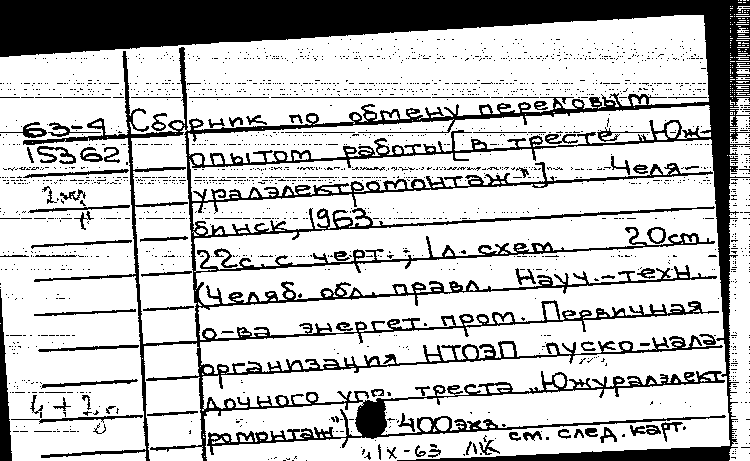 63-4 Сборник по обмену передовым
15362 опытом работы [в тресте „Юж-
2 экз уралэлектромонтаж"]. Челя-
бинск, 1963.
22с. с черт.; 1л. схем. 20см.
(Челяб. обл. правл. Науч.-техн.
о-ва энергет. пром. Первичная
организация НТОЭП пуско-нала-
дочного упр. треста „Южуралэлект-
4+2 ромонтаж") 400экз.
4/X-63 см. след. карт.